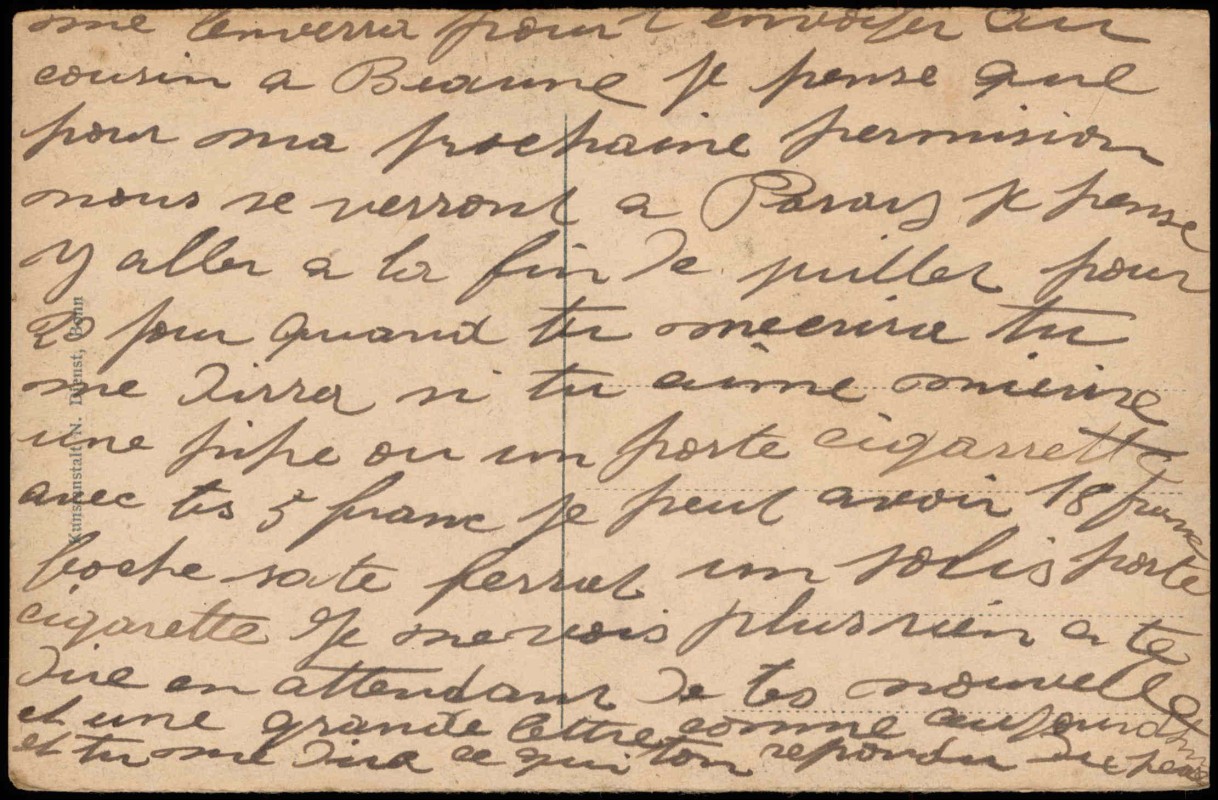 me lenverra pour l envoyer au
cousin a Beaune Je pense que
pour ma prochaine permision
nous se verront a Parays je pense
y aller a la fin de juillet pour
20 jour quand tu mecrira tu
me dirra si tu aime mieuxe
une pipe ou un porte cigarrette
avec tes 5 franc je peut avoir 18 franc
boche sa te ferrat un solis porte
cigarette Je ne vois plus rien a te
dire en attendant de tes nouvelle
et une grande lettre comme aujourdhui
et tu me dira ce qui ton repondu
Kunstanstalt N. Dienst, Bonn